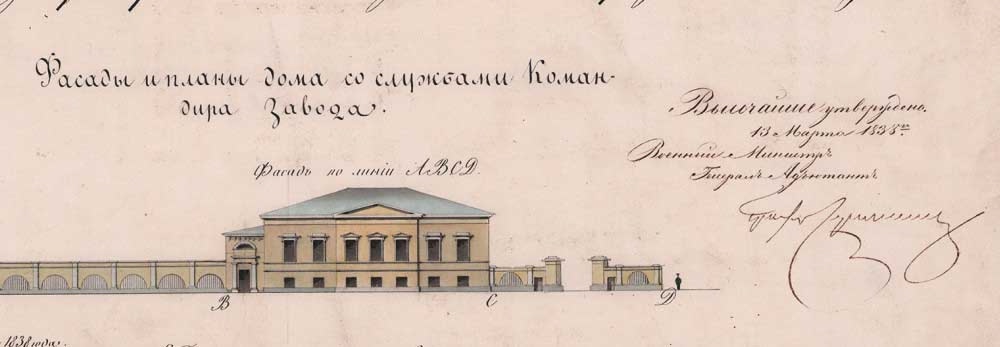 Фасады и планы дома со службами Коман-
дира Завода.
Высочайше утверждено.
13 Марта 1838го.
Военный Министръ
Генералъ Адъютантъ
Графъ
Фасадъ по линіи ABCD.
B
C
D
1838 года.